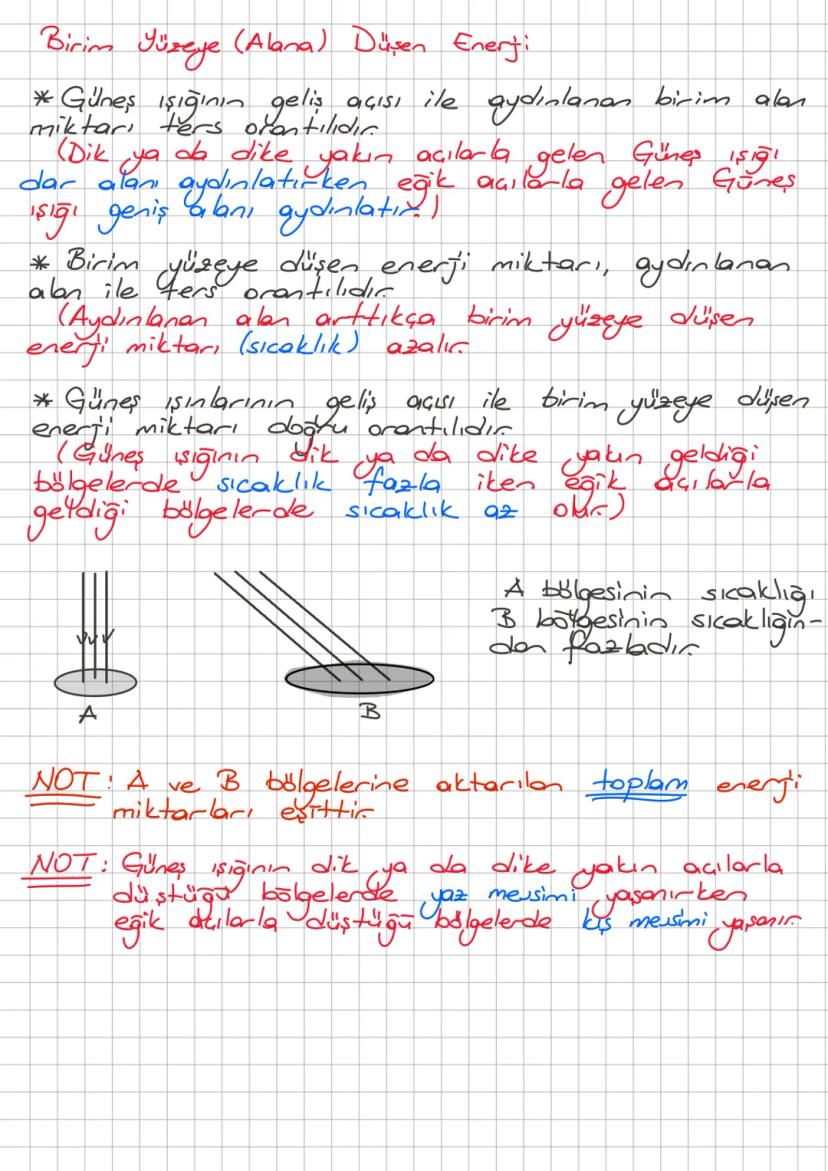 Birim Yüzeye (Alana) Düşen Enerji
* Güneş ışığının geliş açısı ile aydınlanan birim alan
miktarı ters orantılıdır.
(Dik ya da dike yakın açılarla gelen Güneş ışığı
dar alanı aydınlatırken eğik açılarla gelen Güneş
ışığı geniş alanı aydınlatır.)
* Birim yüzeye düşen enerji miktarı, aydınlanan
alan ile ters orantılıdır.
(Aydınlanan alan arttıkça birim yüzeye düşen
enerji miktarı (sıcaklık) azalır.
* Güneş ışınlarının geliş açısı ile birim yüzeye düşen
enerji miktarı doğru orantılıdır.
(Güneş ışığının dik ya da dike yakın geldiği
bölgelerde sıcaklık fazla iken eğik açılarla
geldiği bölgelerde sıcaklık az olur.)
A bölgesinin sıcaklığı
B bölgesinin sıcaklığın-
dan fazladır.
A
B
NOT: A ve B bölgelerine aktarılan toplam enerji
miktarları eşittir.
NOT: Güneş ışığının dik ya da dike yakın açılarla
düştüğü bölgelerde yaz mevsimi yaşanırken
eğik açılarla düştüğü bölgelerde kış mevsimi yaşanır.